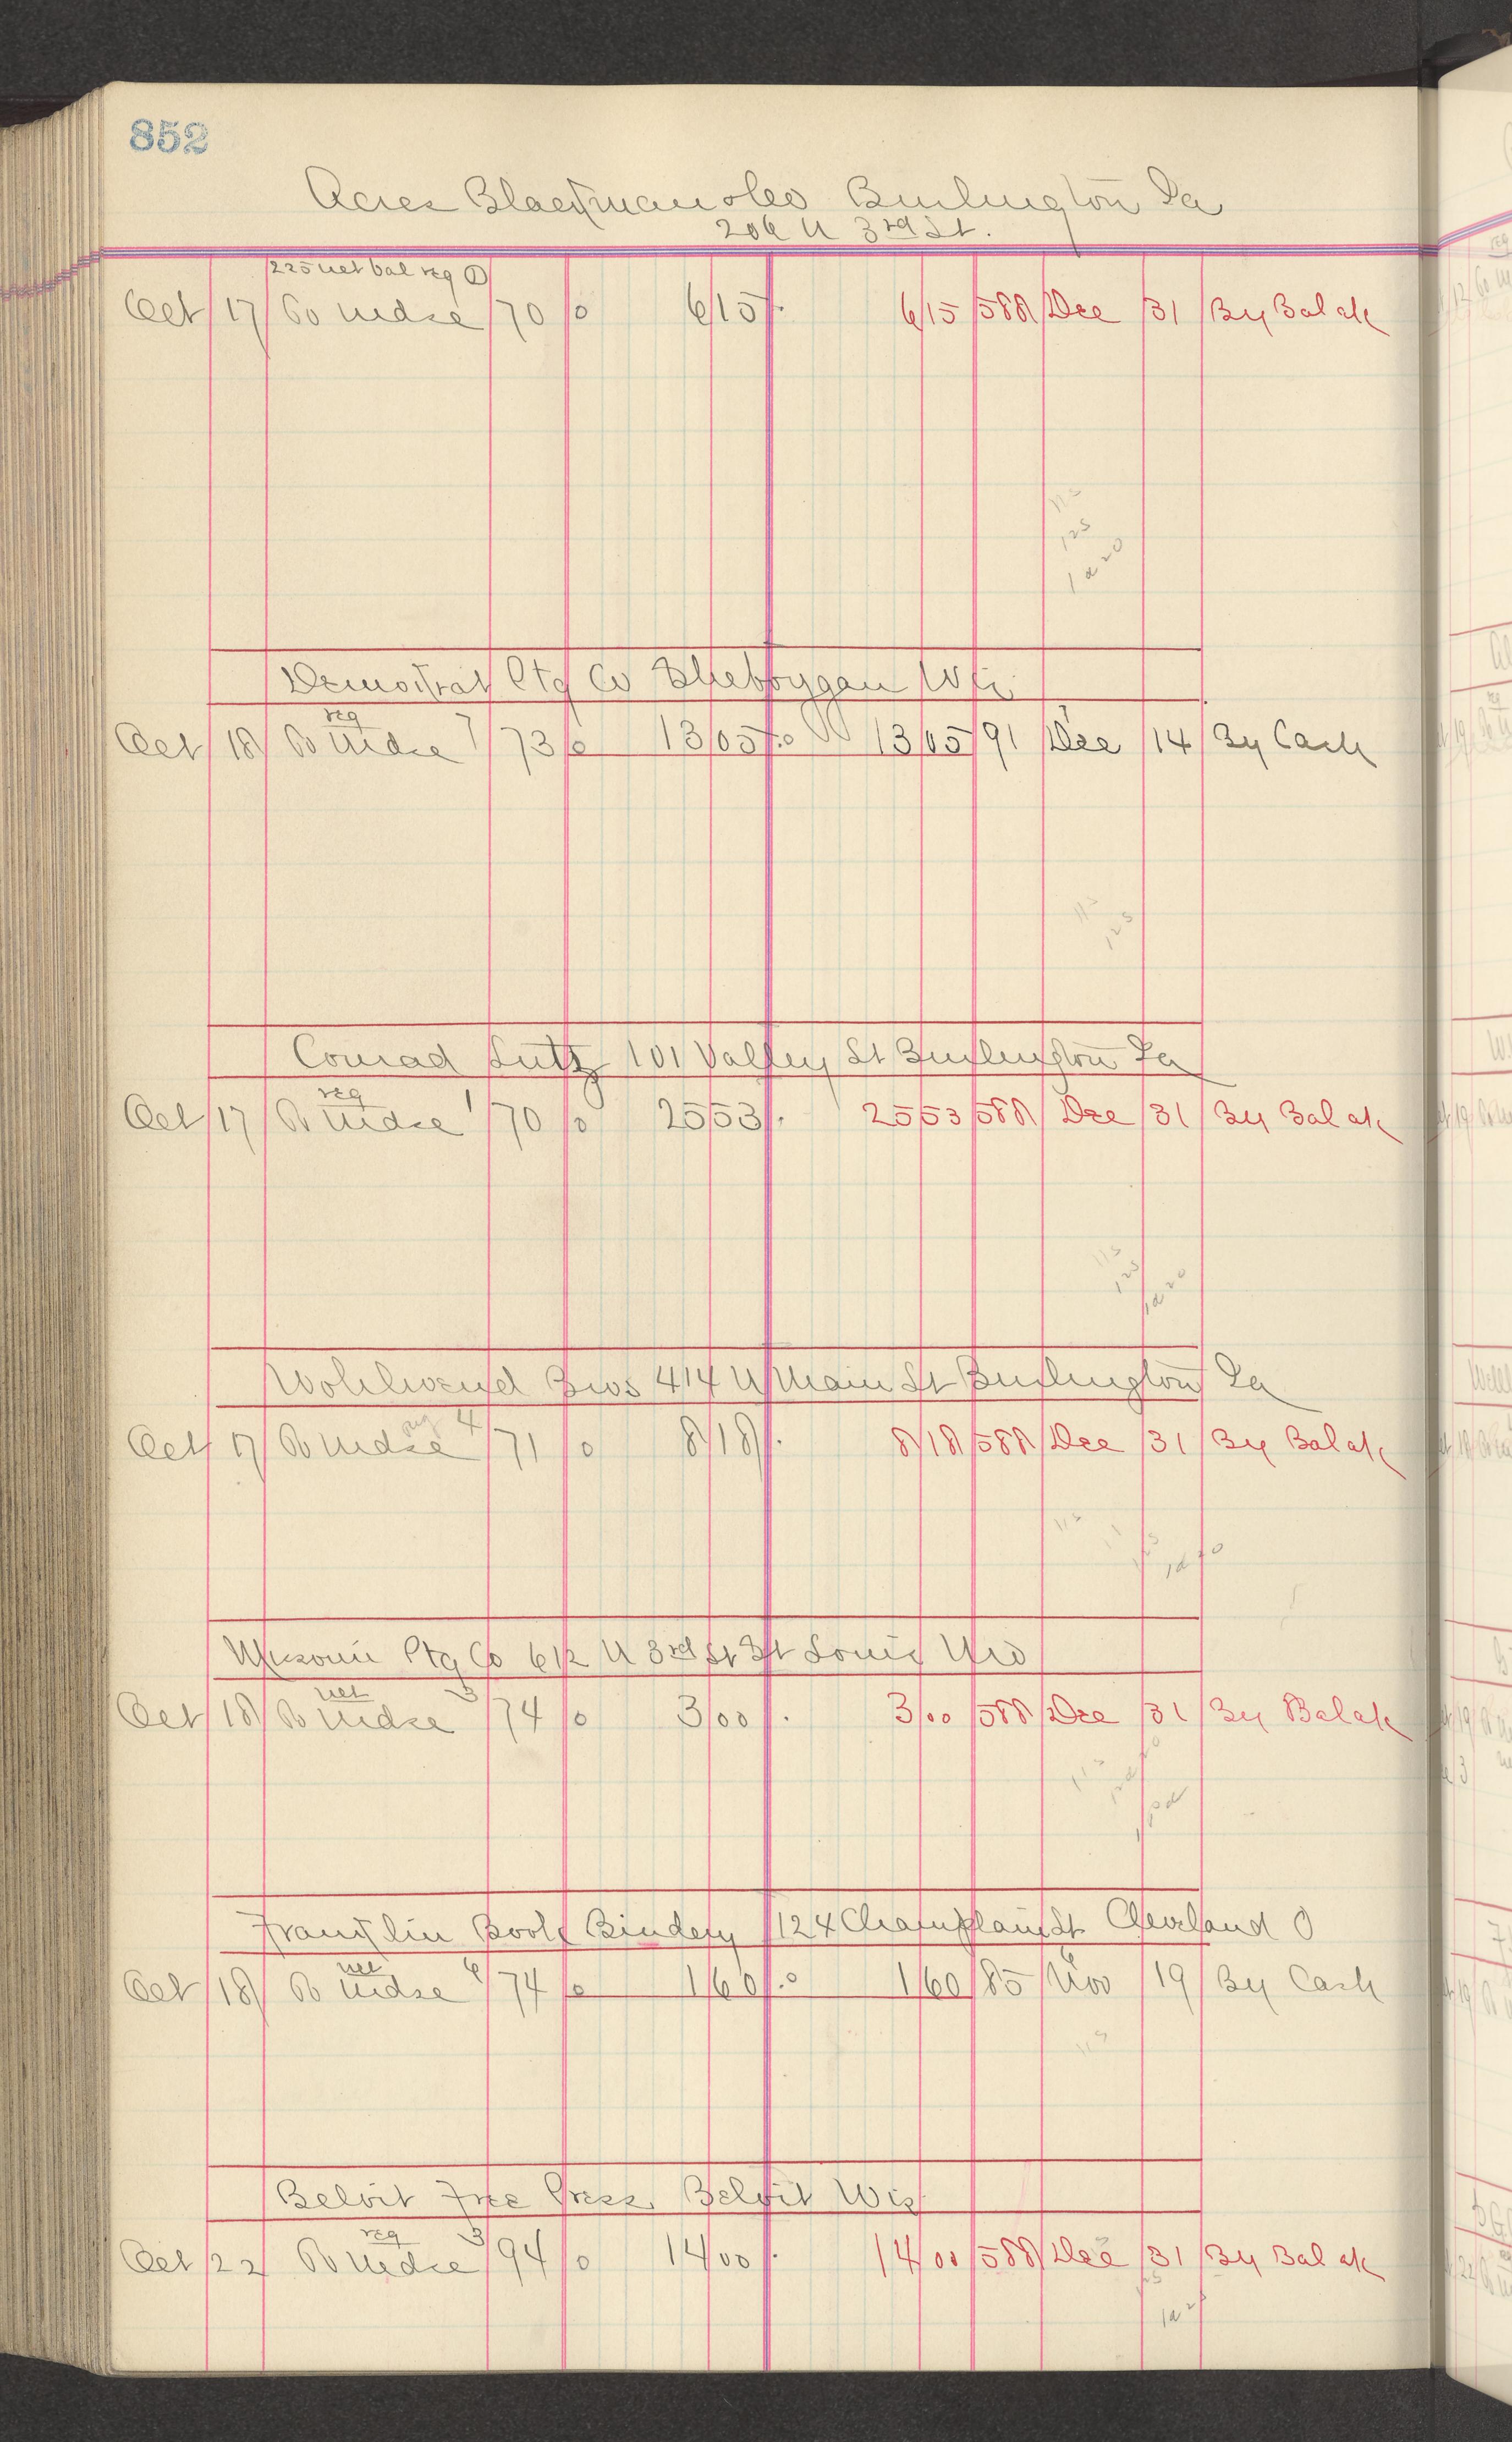 852
Acres Blackman & Co Burlington Ia
206 N 3rd St.
225 net bal reg 1
Oct 17 To Mdse 70 0 6 15 6 15 588 Dec 31 By Bal ak
115
125
1a20
Democrat Ptg Co Sheboygan Wis
reg 7
Oct 18 To Mdse 73 0 13 05 13 05 91 Dec 14 By Cash
115
125
Conrad Lutz 101 Valley St Burlington Ia
reg 1
Oct 17 To Mdse 70 0 25 53 25 53 588 Dec 31 By Bal ak
115
125
1a20
Wohlwend Bros 414 N Main St Burlington Ia
reg 4
Oct 17 To Mdse 71 0 8 18 8 18 588 Dec 31 By Bal ak
115
Missouri Ptg Co 612 N 3rd St St Louis Mo
net 3
Oct 18 To Mdse 74 0 3 00 3 00 588 Dec 31 By Bal ak
115
Franklin Book Bindery 124 Champlain St Cleveland O
net 6
Oct 18 To Mdse 74 0 1 60 1 60 85 Nov 19 By Cash
115
Beloit Free Press Beloit Wis
reg 3
Oct 22 To Mdse 94 0 14 00 14 00 588 Dec 31 By Bal ak